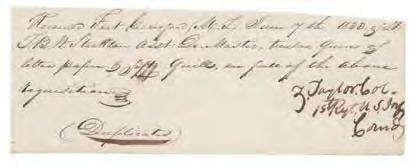 Received Fort Crawford (M. T.) June 7th 1833 of Lt
T. B. W. Stockton asst Qr. Master, twelve Quires of
letter paper & fifty Quills, in full of the above
requisition
Z. Taylor Col.
1st Regt. U S Inf
Comdg
(Duplicates)